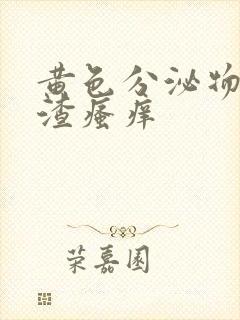 黄色分泌物
渣瘙痒
荣嘉园